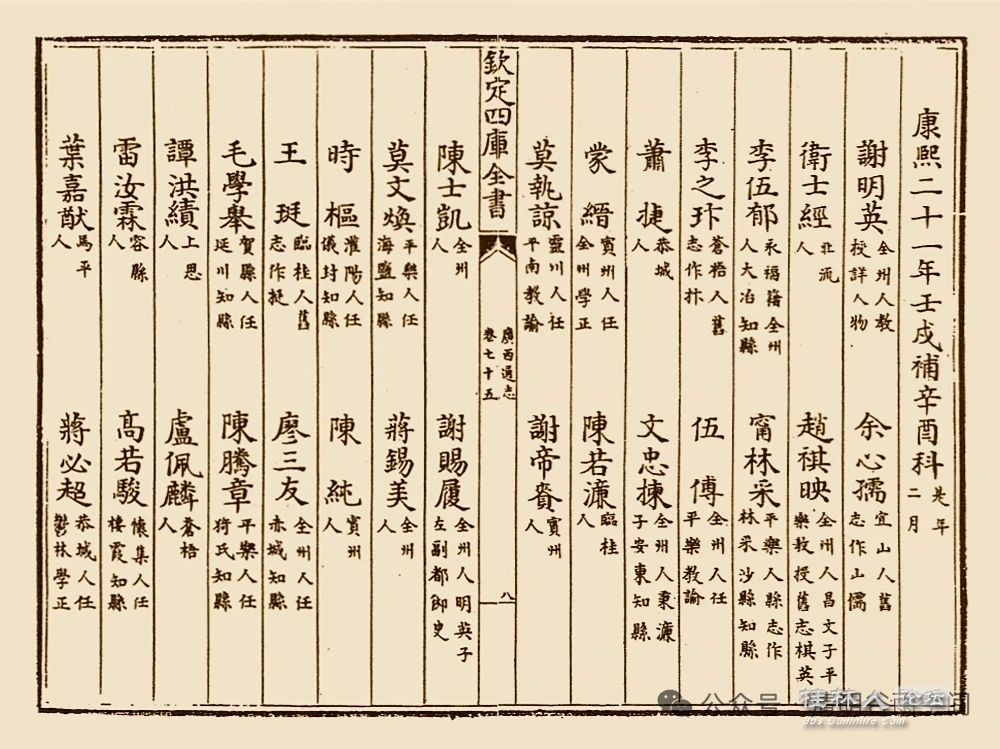 康熙二十一年壬戌補辛酉科是年二月
謝明英全州人教授詳人物 余心孺宜山人舊志作山儒
衛士經北流人 趙祺映全州人昌文子平樂教授舊志棋英
李伍郁永福籍全州人大冶知縣 甯林采平樂人縣志作林采沙縣知縣
李之玣蒼梧人舊志作抃 伍傅全州人任平樂教諭
蕭捷恭城人 文忠揀全州人秉濂子安東知縣
蒙縉賓州人任全州學正 陳若濂臨桂人
莫執諒靈川人任平南教諭 謝帝賚賓州人
欽定四庫全書 廣西通志卷七十五 八
陳士凱全州人 謝賜履全州人明英子左副都御史
莫文煥平樂人任海鹽知縣 蔣錫美全州人
時樞灌陽人任儀封知縣 陳純賓州人
王珽臨桂人舊志作挺 廖三友全州人任赤城知縣
毛學舉賀縣人任延川知縣 陳騰章平樂人任猗氏知縣
譚洪績上思人 盧佩麟蒼梧人
雷汝霖容縣人 高若駿懷集人任棲霞知縣
葉嘉猷馬平人 蔣必超恭城人任鬱林學正
公众号
桂林人论坛
bbs.Guilinlife.com